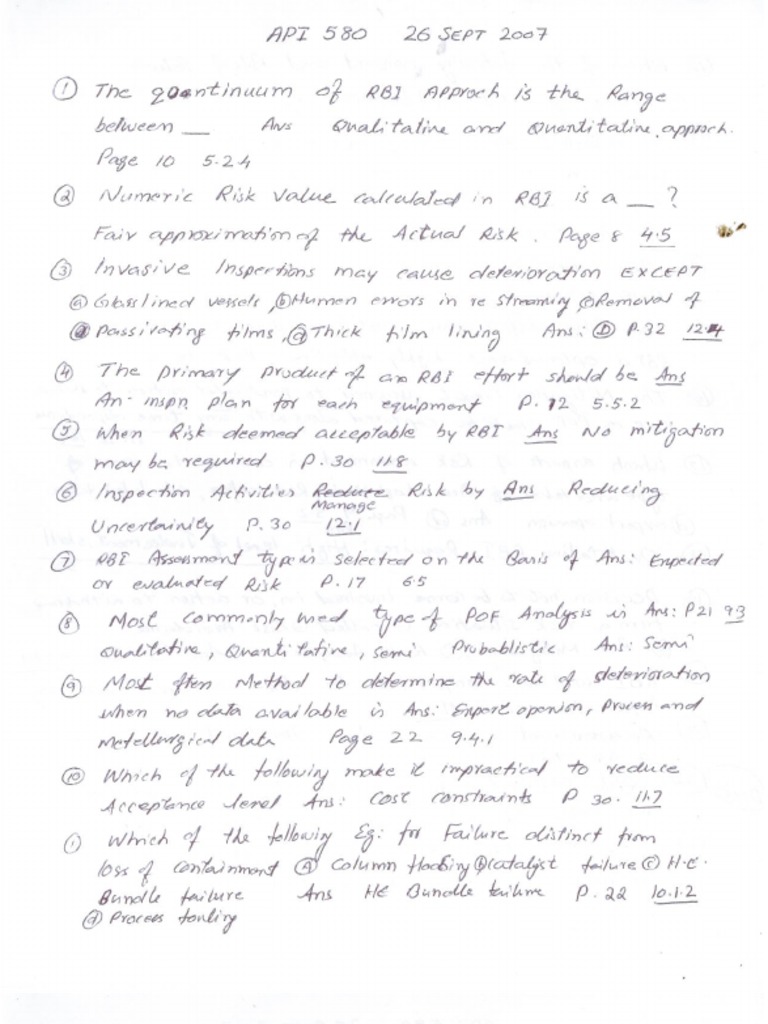 API 580 26 SEPT 2007
① The quontinuum of RBI Approch is the Range
between __ Ans Qualitative and Quantitative approch.
Page 10 5.2.4
② Numeric Risk Value calculated in RBI is a __ ?
Fair approximation of the Actual Risk. Page 8 4.5
③ Invasive Inspections may cause deterioration EXCEPT
ⓐ Glasslined vessels, ⓑ Human errors in re streaming ⓒ Removal of
ⓓ passivating films, ⓓ Thick film lining Ans: ⓓ P.32 12.4
④ The primary product of an RBI effort should be Ans
An inspn. plan for each equipment P. 12 5.5.2
⑤ When Risk deemed acceptable by RBI Ans No mitigation
may be required P. 30 11.8
⑥ Inspection Activities Reduce Risk by Ans Reducing
Manage
Uncertainity P. 30 12.1
⑦ RBI Assessment type is Selected on the Basis of Ans: Expected
or evaluated Risk P. 17 6.5
⑧ Most commonly used type of POF Analysis is Ans: P21 9.3
Qualitative, Quantitative, semi Probablistic Ans: Semi
⑨ Most often Method to determine the rate of deterioration
when no data available is Ans: Expert openion, Process and
metellurgical data Page 22 9.4.1
⑩ Which of the following make it impractical to reduce
Acceptance level Ans: Cost constraints P 30. 11.7
① Which of the following Eg: for Failure distinct from
loss of containment ⓐ Column flooding ⓑ catalyst failure ⓒ H.E.
Bundle failure Ans HE Bundle failure P. 22 10.1.2
ⓓ Process fouling